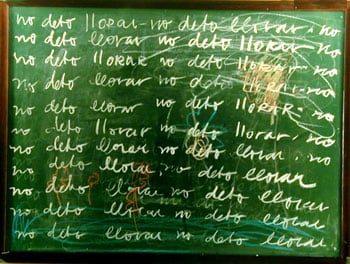 no deto lloRAR no deto llorar. no
no deto llorar no deto lloRAR. no
no deto lloRAR no deto lloRAR. no
no deto llorar no deto lloRAR. no
no deto llorar no deto lloRAR. no
no deto llorar no deto llorar. no
no deto llorar no deto llorar. no
no deto llorar no deto llorar
no, deto llorar no deto llorar
no deto llorar no deto llorar
no deto llorar no deto llorar.